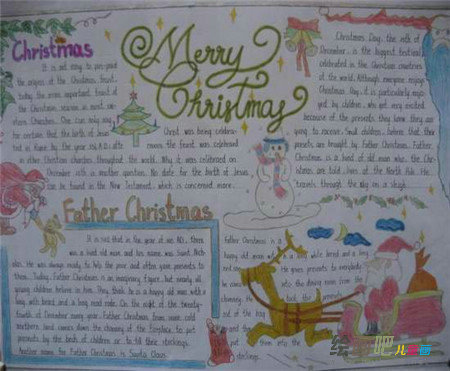 Christmas
It is not easy to pin-point
the origins of the Christmas feast,
today the more important feast of
the Christian season in most wes-
tern Churches. One can only say
for certain that the birth of Jesus
in Rome by the year 336 A.D. : after
in other Christian churches throughout the world. Why it was celebrated on
December 25th is another question. No date for the birth of Jesus
can be found in the New Testament, which is concerned more
Christ was being celebra-
the feast was celebrated
Merry
Christmas
Christmas Day, the 25th of
December, is the biggest festival
celebrated in the Christian countries
of the world. Although everyone enjoys
Christmas Day, it is particularly enjo-
yed by children, who get very excited
because of the presents they know they are
going to receive. Small children believe that their
presents are brought by Father Christmas. Father
Christmas is a kind of old man who, the Chi-
are told, lives at the North Pole. He
travels through the sky on a sleigh
Father Christmas
It is said that in the year of was A.D., there
was a kind old man and his name was Saint Nich-
olas. He was always ready to help the poor and often gave presents to
them. Today, Father Christmas is an imaginary figure, but nearly all
young children believe in him. They think he is a happy old man with a
long white beard and a long red robe. On the night of the twenty-
fourth of December every year, Father Christmas from some cold
northern land comes down the chimney of the fireplace to put
presents by the beds of children or to fill their stockings.
Another name for Father Christmas is Santa Claus.
Father Christmas is a
happy old man
loved and a long
He gives presents to everybody
into the dining room from the
chimney
the presents
out of the bag
and
put them into the
stockings.
绘吧儿童画